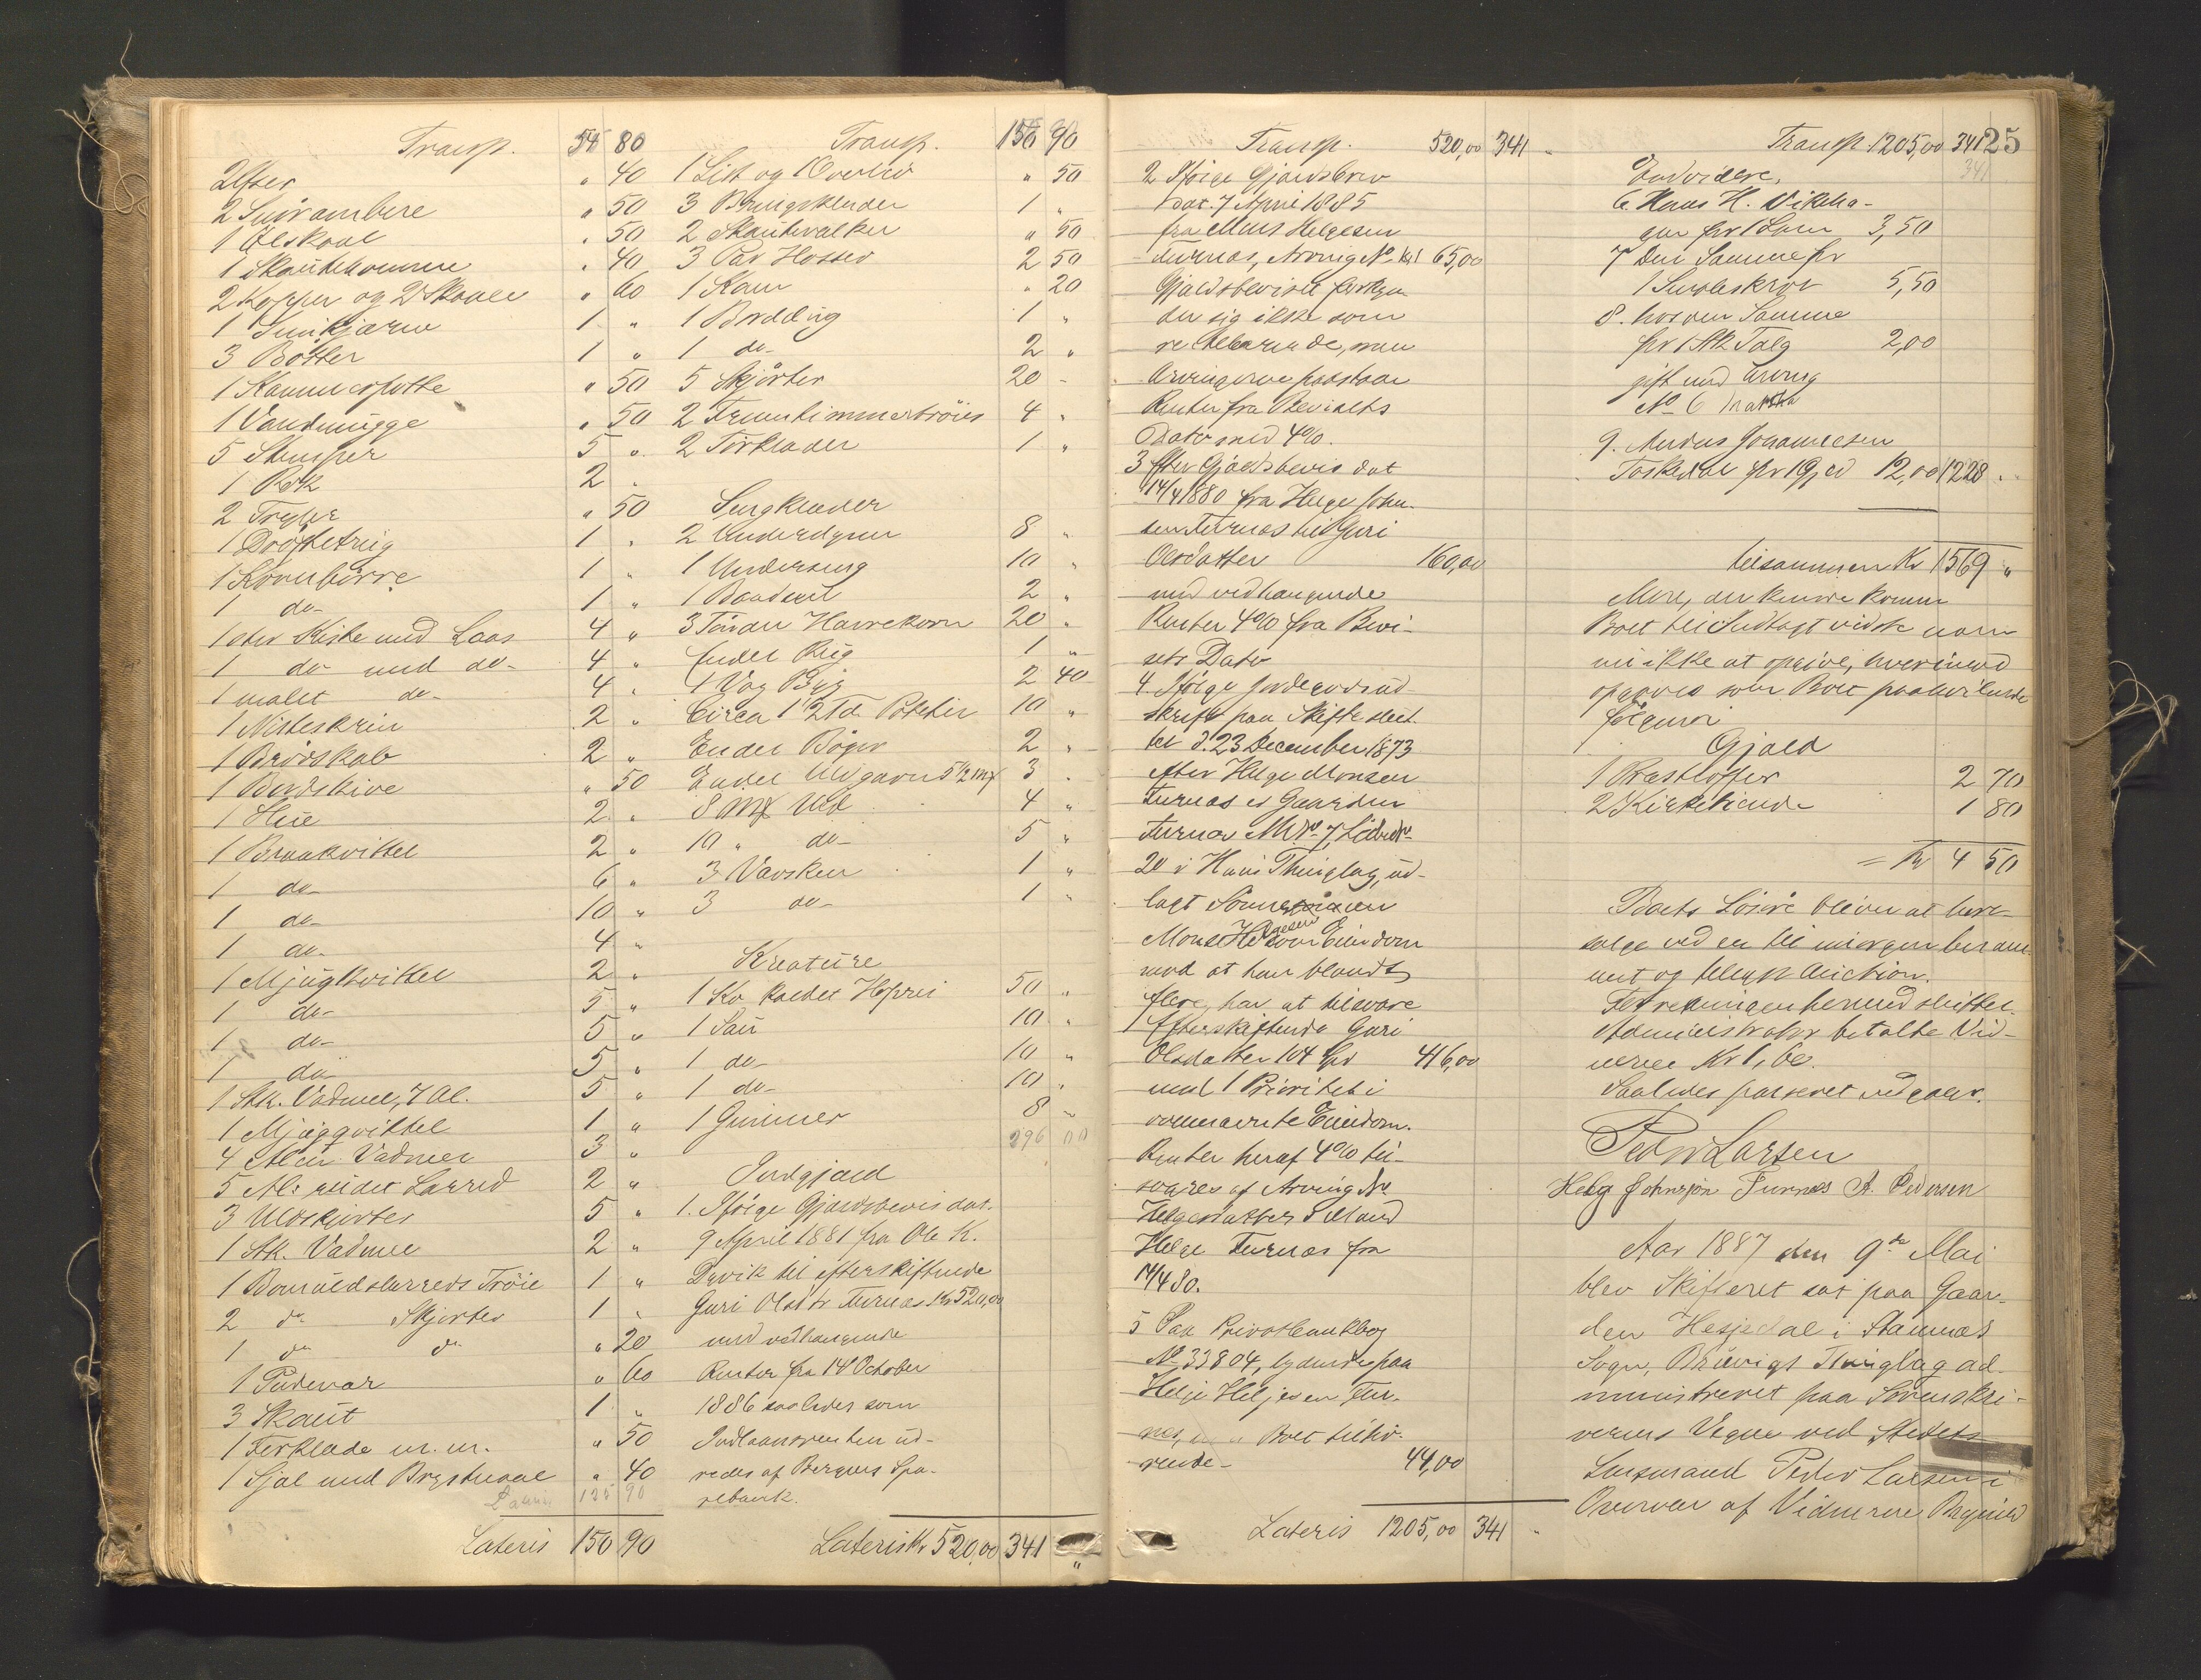 Transp. 54 80
2 Æsker " 40
2 Smørambere " 50
1 Ølskaal " 50
1 " 40
2 Kopper og 2 Skaaler " 60
1 Smikjærne 1 "
3 Bøtter 1 "
1 Kammerpotte " 50
1 Vandmugge " 50
5 Stamper 5 "
1 Rok 2 "
2 Tryper " 50
1 1 "
1 Kornbørre 1 "
1 do 1 "
1 Kiste med Laas 4 "
1 do med do 4 "
1 malet do 4 "
1 Nisteskrin 2 "
1 Brødskab 2 "
1 Bordskive " 50
1 Hue 2 "
1 Braakvittel 2 "
1 do 6 "
1 do 10 "
1 do 4 "
1 Mjugkvittel 2 "
1 do 5 "
1 do 5 "
1 do 5 "
1 Stk. Vadmel, 7 Al. 5 "
1 Mjuggvittel 1 "
4 Alen Vadmel 3 "
5 Al. Lærred 2 "
3 Uldskjorter 5 "
1 Stk. Vadmel 2 "
1 Bomuldslærreds Trøie 1 "
2 do Skjorter 1 "
1 do do " 20
1 Pudevar " 60
3 Skaut 1 "
1 Forklæde m. m. " 50
1 Sjal med " 40
125 90
Lateris 150 90
Transp. 150 90
1 List og 1 Overliv " 50
3 Bringeklæder 1 "
2 Skautevalker " 50
3 Par Hoser 2 50
1 Kam " 20
1 Borddug 1 "
1 do 2 "
5 Skjørter 20 -
2 Fruentimmertrøier 4 "
2 Tørklæder 1 "
Sengklæder
2 Underdyner 8 "
1 Underseng 10 "
1 2 "
3 Tønder Havrekorn 20 "
Endel Rug 1 "
1 Vog Byg 2 40
Circa 1 1/2 Td. Poteter 10 "
Endel Bøger 2 "
Endel Uldgarn 5 1/2 m 3 "
8 m Uld 4 "
10 " do 5 "
3 1 "
3 do 1 "
Kreature
1 Ko kaldet 50 "
1 Sau 10 "
1 do 10 "
1 do 10 "
1 Gimmer 8 "
296 00
Indgjæld
1. Ifølge Gjældsbevis dat.
9 April 1881 fra Ole K.
Dyvik til efterskiftende
Guri Olsdtr Turnes Kr 520,00
med vedhængende
Renter fra 14 October
1886 saaledes som
Indlaansrenten ud-
redes af Bergens Spa-
rebank.
Lateris Kr 520,00 341 "
Transp. 520,00 341 "
2 Ifølge Gjældsbrev
dat. 7 April 1885
fra Mons Helgesen
Turnes, Arving No 1 65,00
Gjældsbeviset forkyn-
der sig ikke som
rentebærende, men
Arvingerne paastaar
Renter fra Bevisets
Dato med 4%.
3 Efter Gjældsbevis dat
14/4 1880 fra Helge John-
sen Turnes til Guri
Olsdatter 160,00
med vedhængende
Renter 4% fra Bevi-
sets Dato
4 Ifølge Jordegods ud-
skrift paa Skifte slut-
tet d. 23 December 1873
efter Helge Monsen
Turnes er Gaarden
Turnes M No 7, Løbe No
20 i Hans Thinglag, ud-
lagt Sønnen
Mons Helgesen som Eiendom
mod at han blandt
flere, har at tilsvare
Efterskiftende Guri
Olsdatter 104 Spd 416,00
med 1 Prioritet i
ovennævnte Eiendom.
Renter heraf 4% til-
svares af Arving No
Helgesdatter
Helge Turnes fra
14/4 80.
5 Paa Privatbankbog
No 33804, lydende paa
Helje Heljesen Tur-
nes, Boet tilhø-
rende 44,00
Lateris 1205,00 341 "
Transp. 1205,00 341 25
341
Endvidere,
6 Hans H. Vikna-
gen for 1 Lam 3,50
7 Den Samme for
1 5,50
8. hos den Samme
for 1 Stk Talg 2,00
gift med Arving
No 6
9. Anders Johannesen
Toskedal for 1 Gjed 12,00 1228 "
tilsammen Kr 1569 "
Mere, der kunde komme
Boet til Indtægt vidste man
nu ikke at opgive, hvorimod
opgaves som Boet paahvilende
følgende
Gjæld
1 Præstoffer 2 70
2 Kirketiende 1 80
= Kr 4 50
Boets Løsøre bliver at bort-
sælge ved en til imorgen beram-
met og Auction.
Forretningen hermed sluttet.
Administrator betalte Vid-
nerne Kr 1,60.
Saaledes passeret vedgaaes.
Peder Larsen
Helg Johnsjøn Turnes A. Pedersen
Aar 1887 den 9de Mai
blev Skifteret sat paa Gaar-
den Hesjedal i Stamnes
Sogn, Bruvigs Thinglag ad-
ministreret paa Sorenskri-
verens Vegne ved Stedets
Lensmand Peder Larsen i
Overvær af Vidnerne Brynild